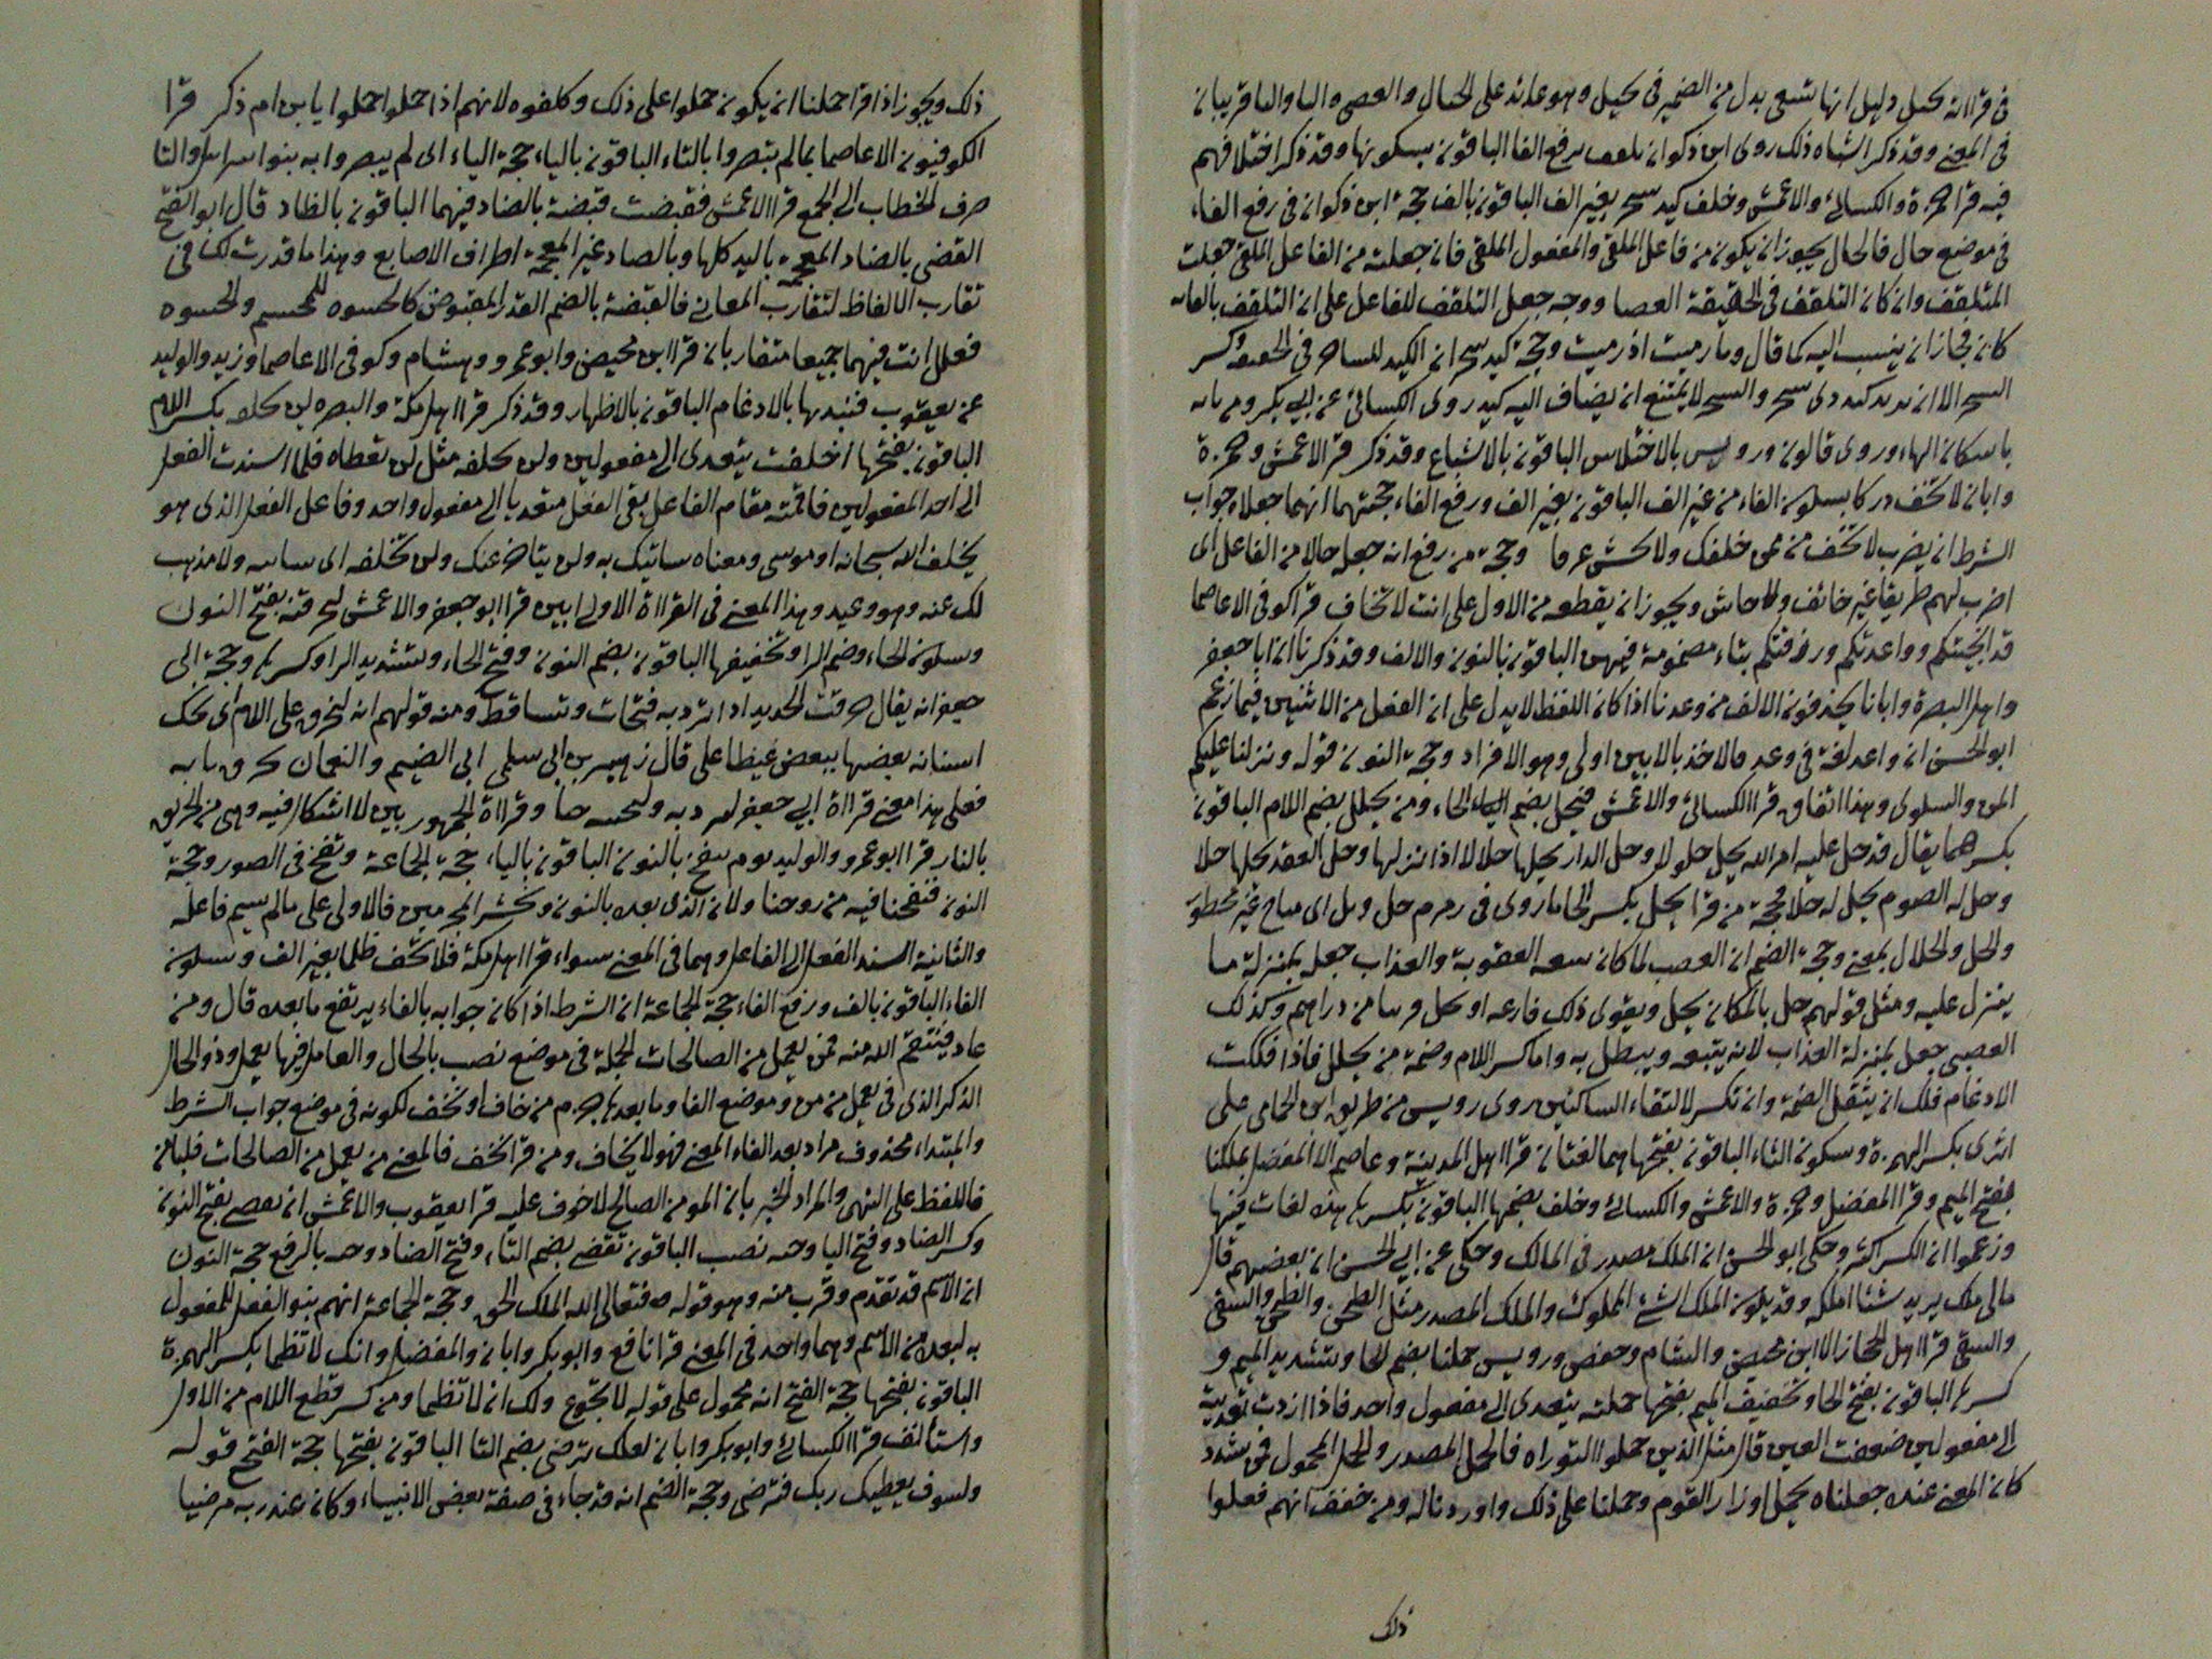 في قراانه تخيل دليل انها تسعى بدل من الضمير في تخيل وهو عائد على الحبال والعصى والبا والتا قريبان
في المعنى وقد ذكر اشباه ذلك روى ابن ذكوان تلقف برفع الفا الباقون بسكونها وقد ذكر اختلافهم
فيه قرا حمزة والكسائي والاعمش وخلف كيد سحر بغير الف الباقون بالف حجة ابن ذكوان في رفع الفاء
في موضع حال فالحال يجوز ان يكون من فاعل الملقى والمفعول الملقى فان جعلته من الفاعل الملقى جعلت
المتلقف وان كان التلقف في الحقيقة العصا ووجه جعل التلقف للفاعل على ان التلقف بالقائه
كان فجاز ان ينسب اليه كما قال وما رميت اذ رميت وحجة كيد سحر ان الكيد للساحر في الحقيقة وكسر
السحر الا ان يريد كيد ذى سحر والسحر لا يمتنع ان يضاف اليه كيد روى الكسائي عن ابي بكر ومن ياته
باسكان الهاء وروى قالون ورويس بالاختلاس الباقون بالاشباع وقد ذكر قرا الاعمش وحمزة
وابان لا تخف دركا بسكون الفاء من غير الف الباقون بغير الف ورفع الفاء حجتهما انهما جعلاه جواب
الشرط ان يضرب لا تخف ممن خلفك ولا تخش غرقا وحجة من رفع انه جعل حالا من الفاعل اى
اضرب لهم طريقا غير خائف ولا خاش ويجوز ان يقطعه من الاول على انت لا تخاف قرا كوفي الا عاصما
قد انجيتكم وواعدتكم ورزقتكم بتاء مضمومة فيهن الباقون بالنون والالف وقد ذكرنا ان ابا جعفر
واهل البصرة وابانا يحذفون الالف من وعدنا اذا كان اللفظ لا يدل على ان الفعل من الاثنين فيما زعم
ابو الحسن ان واعد لغة في وعد فالاخذ بالابين اولى وهو الافراد وحجة النون قوله ونزلنا عليكم
المن والسلوى وهذا اتفاق قرا الكسائي والاعمش فيحل بضم الحاء ومن يحلل بضم اللام الباقون
بكسرهما يقال قد حل عليه امر الله يحل حلولا وحل الدار يحلها حلالا اذا نزلها وحل العقد يحلها حلا
وحل له الصوم يحل له حلا حجة من قرا يحل بكسر الحا ما روى في زمزم حل وبل اى مباح غير محظور
والحل والحلال بمعنى وحجة الضم ان الغضب لما كان تتبعه العقوبة والعذاب جعل بمنزلة ما
ينزل عليه ومثل قولهم حل بالمكان يحل ويقوى ذلك قارعة او تحل قريبا من دارهم وكذلك
الغضب جعل بمنزلة العذاب لانه يتبعه ويبطل به واما كسر اللام وضمة من يحلل فاذا فككت
الادغام فلك ان يثقل الضمة وان تكسر لالتقاء الساكنين روى رويس من طريق ابن الحامى على
اثرى بكسر الهمزة وسكون الثاء الباقون بفتحها هما لغتان قرا اهل المدينة وعاصم الا المفضل بملكنا
بفتح الميم وقرا المفضل وحمزة والاعمش والكسائي وخلف بضمها الباقون بكسرها هذه لغات فيها
وزعموا ان الكسر اكثر وحكى ابو الحسن ان الملك مصدر في المالك وحكى عن ابي الحسن ان بعضهم قال
مالى ملك يريد شئا املكه وقد يكون الملك الشئ المملوك والملك المصدر مثل الطحن والطحن والسقى
والسقى قرا اهل الحجاز الا ابن محيصن والشام وحفص ورويس حملنا بضم الحا وتشديد الميم و
كسرها الباقون بفتح الحا وتخفيف الميم بفتحها حملته يتعدى الى مفعول واحد فاذا اردت تعديته
الى مفعولين ضعفت العين قال مثل الذين حملوا التوراه فالحمل المصدر والحمل المحمول فمن شدد
كان المعنى عنده جعلناه يحمل اوزار القوم وحملنا على ذلك واوردناله ومن خفف انهم فعلوا
ذلك
ذلك ويجوز اذا قرا حملنا ان يكون حملوا على ذلك وكلفوه لانهم اذا حملوا حملوا يا بن ام ذكر قرا
الكوفيون الا عاصما بما لم تبصروا بالتاء الباقون بالياء حجة الياء اى لم يبصروا به بنو اسرايل والتا
صرف الخطاب الى الجمع قرا الاعمش فقبضت قبضة بالضاد فيهما الباقون بالظاد قال ابو الفتح
القضى بالضاد المعجمة باليد كلها وبالصاد غير المعجمة اطراف الاصابع وهذا ما قدرت لك في
تقارب الالفاظ لتقارب المعاني فالقبضة بالضم القدر المقبوض كالحسوه للمحسم والحسوه
فعلك انت فيهما جميعا متقاربان قرا ابن محيصن وابو عمرو وهشام وكوفى الا عاصما وزيد والوليد
عن يعقوب فنبذتها بالادغام الباقون بالاظهار وقد ذكر قرا اهل مكة والبصره لن تخلفه بكسر اللام
الباقون بفتحها اخلفت يتعدى الى مفعولين ولن تخلفه مثل لن تعطاه فلما اسندت الفعل
الى احد المفعولين فاقمته مقام الفاعل بقى الفعل متعديا الى مفعول واحد وفاعل الفعل الذى هو
يخلف الله سبحانه او موسى ومعناه سناتيك به ولن يتاخر عنك ولن تخلفه اى ساتيه ولا مذهب
لك عنه وهو وعيد وهذا المعنى في القراة الاولى ابين قرا ابو جعفر والاعمش لنحرقنه بفتح النون
وسكون الحاء وضم الرا وتخفيفها الباقون بضم النون وفتح الحاء وتشديد الرا وكسرها وحجة ابى
جعفر انه يقال حرقت الحديد اذا بردته فتحات وتساقط ومنه قولهم انه ليحرق على الارم اى يحك
اسنانه بعضها ببعض غيظا على قال زهير بن ابى سلمى ابى الضيم والنعمان يحرق نابه
فعلى هذا معنى قراة ابي جعفر لنبردنه ولنحتنه حتا وقراة الجمهور بين لا اشكال فيه وهى من الحريق
بالنار قرا ابو عمرو والوليد يوم ننفخ بالنون الباقون بالياء حجة الجماعة ونفخ في الصور وحجة
النون فنفخنا فيه من روحنا ولان الذى بعده بالنون ونحشر المجرمين فالاولى على مالم يسم فاعله
والثانية اسند الفعل الى الفاعل وهما في المعنى سواء قرا اهل مكة فلا تخف ظلما بغير الف وسكون
الفاء الباقون بالف ورفع الفاء حجة الجماعة ان الشرط اذا كان جوابه بالفاء يرتفع ما بعده قال ومن
عاد فينتقم الله منه فمن يعمل من الصالحات الجملة في موضع نصب بالحال والعامل فيها يعمل وذو الحال
الذكر الذى في يعمل من من وموضع الفا وما بعدها جزم من خاف او تخف لكونه في موضع جواب الشرط
والمبتداء محذوف مراد بعد الفاء المعنى فهو لا يخاف ومن قرا تخف فالمعنى من يعمل من الصالحات فليامن
فاللفظ على النهى والمراد الخبر بان المومن الصالح لا خوف عليه قرا يعقوب والاعمش ان نقضى بفتح النون
وكسر الضاد وفتح اليا وحيه نصب الباقون تقضى بضم التاء وفتح الضاد وحيه بالرفع حجة النون
ان الاسم قد تقدم وقرب منه وهو قوله فتعالى الله الملك الحق وحجة الجماعة انهم بنوا الفعل للمفعول
به لبعده من الاسم وهما واحد في المعنى قرا نافع وابو بكر وابان والمفضل وانك لا تظما بكسر الهمزة
الباقون بفتحها حجة الفتح انه محمول على قوله لا تجوع ولك ان لا تظما ومن كسر قطع اللام من الاول
واستانف قرا الكسائي وابو بكر وابان لعلك ترضى بضم التا الباقون بفتحها حجة الفتح قوله
ولسوف يعطيك ربك فترضى وحجة الضم انه قد جاء في صفة بعض الانبياء وكان عند ربه مرضيا